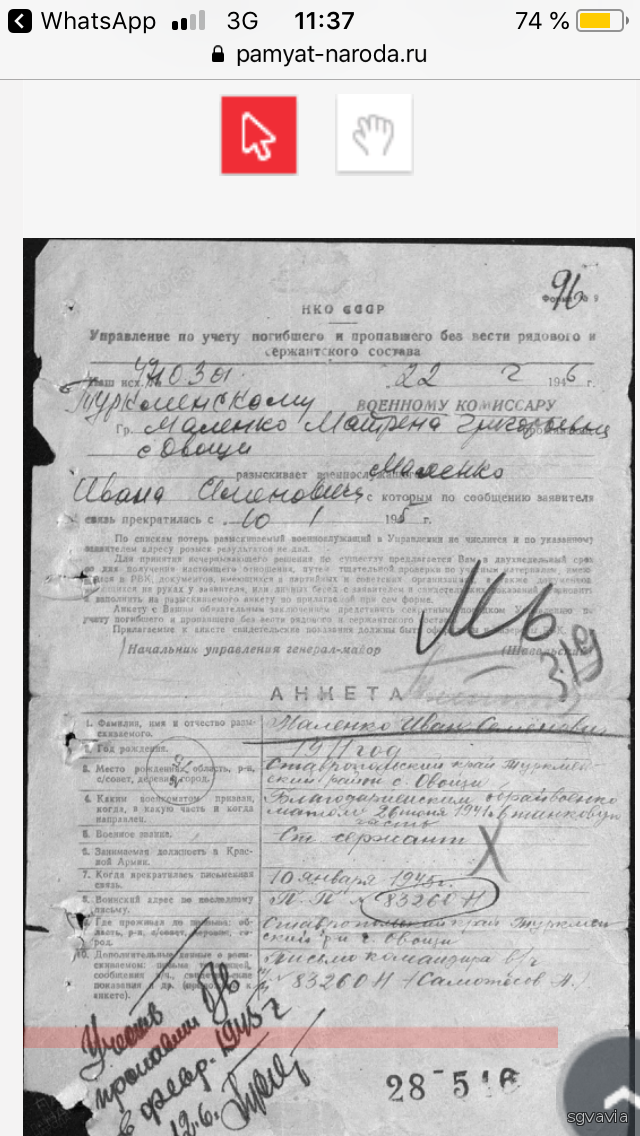 WhatsApp 3G 11:37 74 %
pamyat-naroda.ru
96
НКО СССР
Управление по учету погибшего и пропавшего без вести рядового и
сержантского состава
Наш исх. 22 2 1946 г.
Туркменскому ВОЕННОМУ КОМИССАРУ
Гр. Маленко Матрена Григорьевна
с Овощи
разыскивает военнослужащего Маленко
Ивана Семеновича с которым по сообщению заявителя
связь прекратилась с 10 1 1945 г.
По спискам потерь разыскиваемый военнослужащий в Управлении не числится и по указанному
заявителем адресу розыск результатов не дал.
Для принятия исчерпывающего решения по существу предлагается Вам в двухнедельный срок
со дня получения настоящего отношения, путем тщательной проверки по учетным материалам,
в РВК, документов, имеющихся в партийных и советских организациях, а также документов
на руках у заявителя, или личных бесед с заявителем и
и заполнить на разыскиваемого анкету по прилагаемой при сем форме.
Анкету с Вашим обязательным заключением представить секретным порядком Управлению по
учету погибшего и пропавшего без вести рядового и сержантского состава.
Прилагаемые к анкете свидетельские показания должны быть
Начальник управления генерал-майор (Шавельский)
3/19
АНКЕТА
1. Фамилия, имя и отчество разыскиваемого. Маленко Иван Семенович
2. Год рождения. 1911 год
3. Место рождения: область, р-н, Ставропольский край Туркмен-
с/совет, деревня, город. ский район с. Овощи
4. Каким военкоматом призван, Благодарненским обрайвоенко-
когда, в какую часть и когда матом 1941 г. в танковую
направлен. часть
5. Военное звание. Ст. сержант
6. Занимаемая должность в Крас-
ной Армии.
7. Когда прекратилась письменная 10 января 1945 г.
связь.
8. Воинский адрес по последнему П.П. № 83260 Н
письму.
9. Где проживал до призыва: об- Ставропольский край Туркмен-
ласть, р-н, с/совет, деревня, го- ский р-н с. Овощи
род.
10. Дополнительные данные о разы- Письмо командира в/ч
скиваемом:
83260 Н
анкете).
Учесть
пропавш
в февр. 1945 г
12.6.
28 516
sgvavla